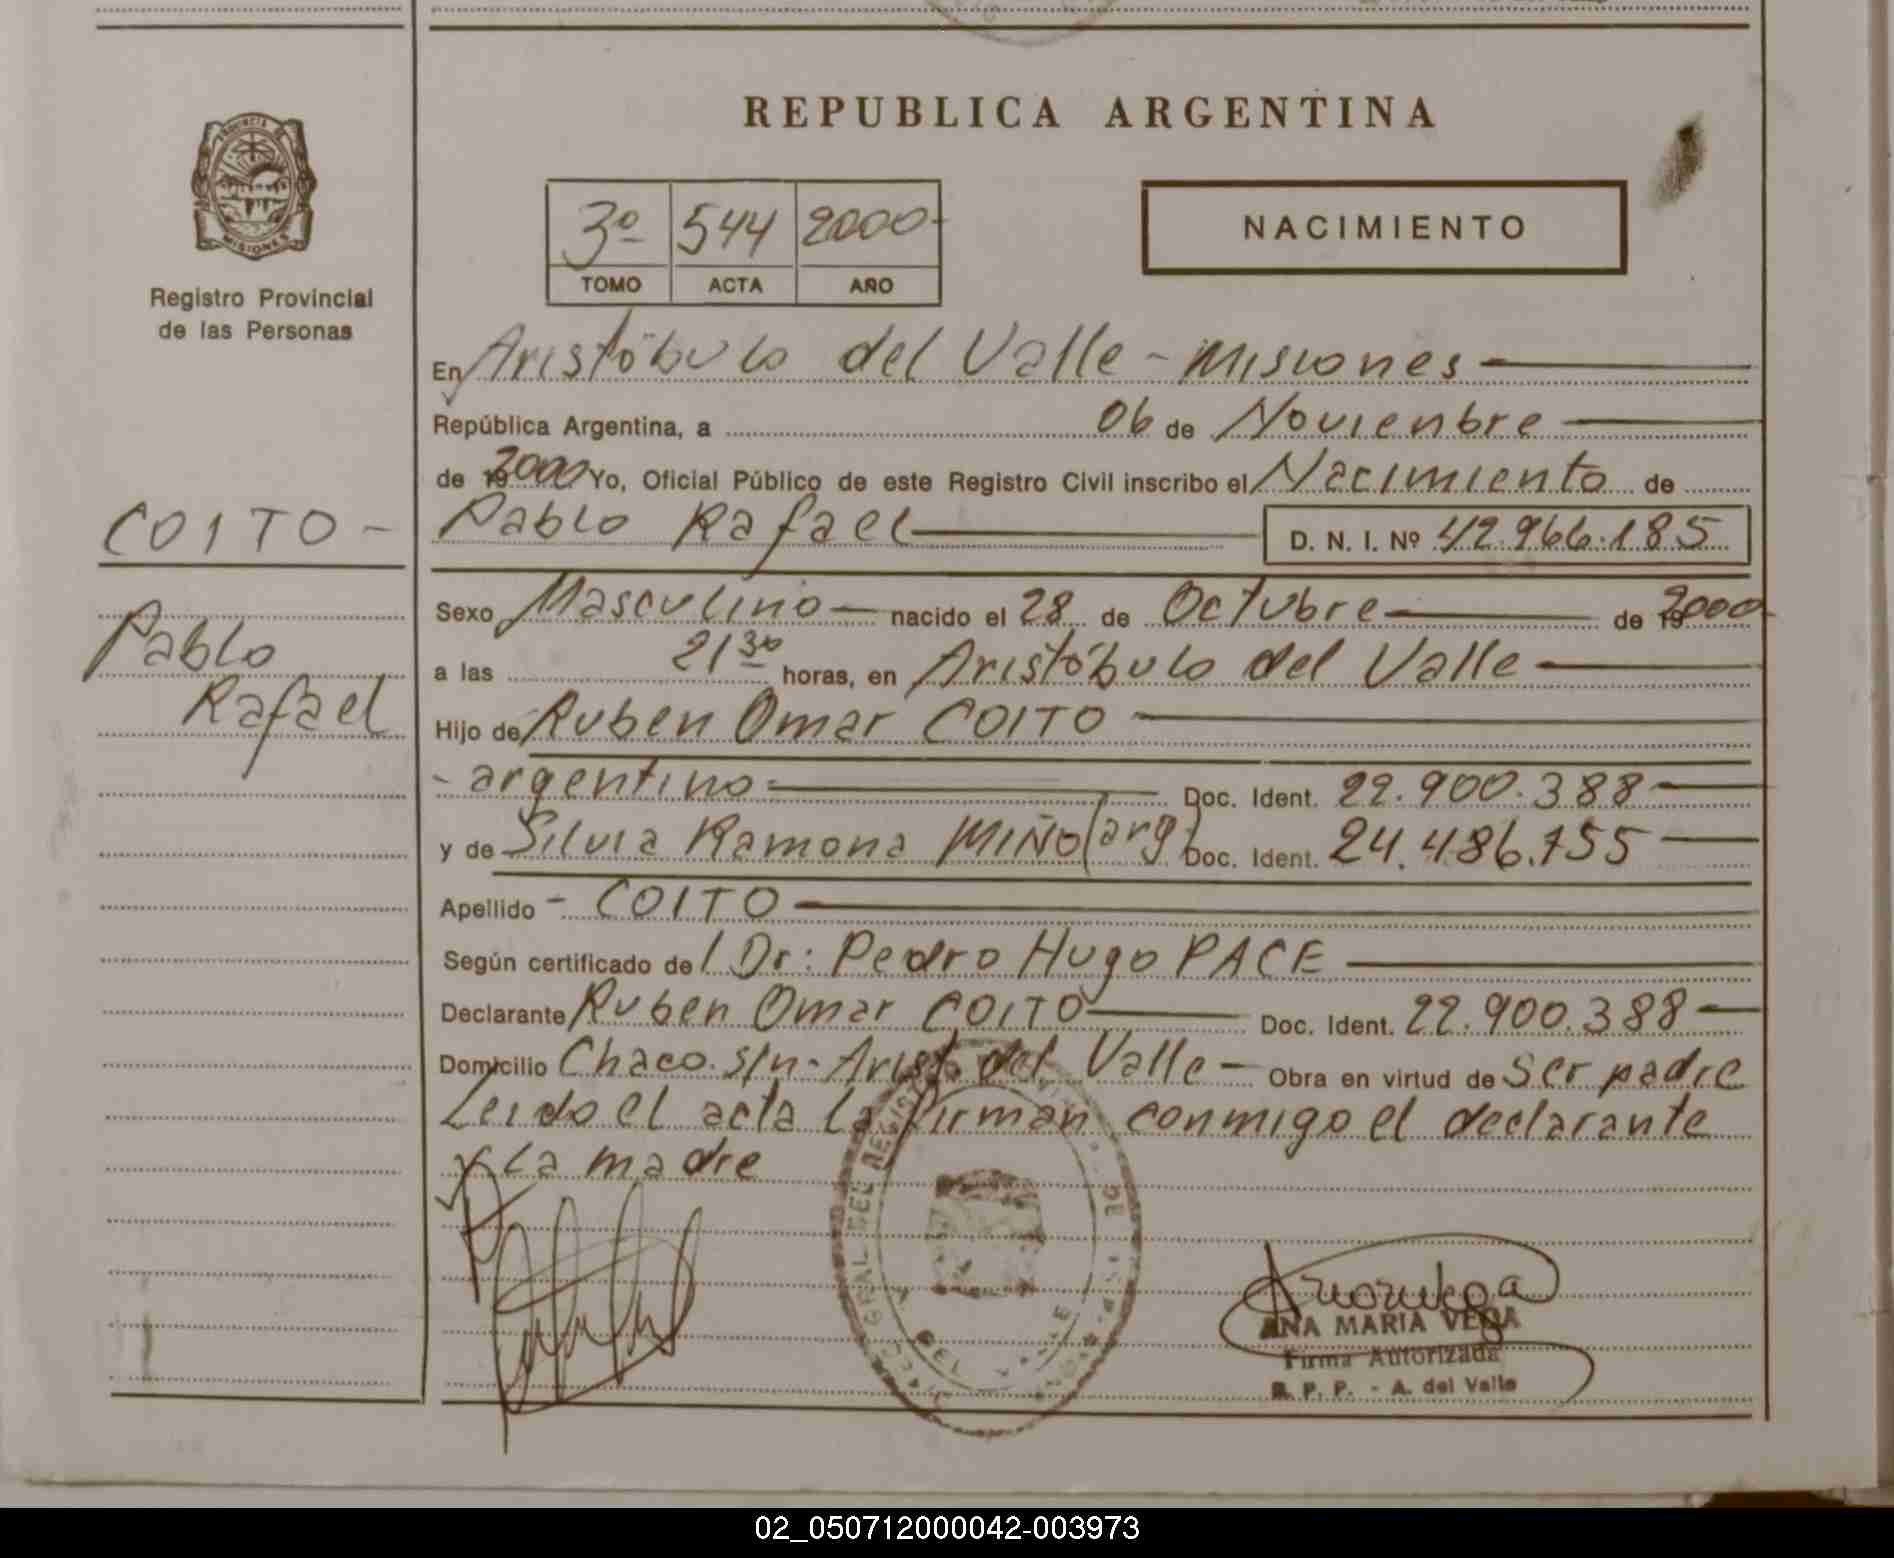 REPUBLICA ARGENTINA
PROVINCIA DE
MISIONES
Registro Provincial
de las Personas
3º 544 2000-
TOMO ACTA AÑO
NACIMIENTO
En Aristóbulo del Valle - Misiones
República Argentina, a 06 de Novienbre
de 2000 Yo, Oficial Público de este Registro Civil inscribo el Nacimiento de
COITO -
Pablo Rafael D. N. I. Nº 42.966.185
Sexo Masculino nacido el 28 de Octubre de 2000-
Pablo
Rafael
a las 21 30 horas, en Aristóbulo del Valle
Hijo de Ruben Omar COITO
- argentino- Doc. Ident. 22.900.388
y de Silvia Ramona MIÑO (arg) Doc. Ident. 24.486.755
Apellido - COITO
Según certificado de l Dr: Pedro Hugo PACE
Declarante Ruben Omar COITO Doc. Ident. 22.900.388
Domicilio Chaco. s/n- Aristo del Valle - Obra en virtud de Ser padre
Leido el acta la firman conmigo el declarante
y la madre
ANA MARIA VEGA
Firma Autorizada
R. P. P. - A. del Valle
02_050712000042-003973